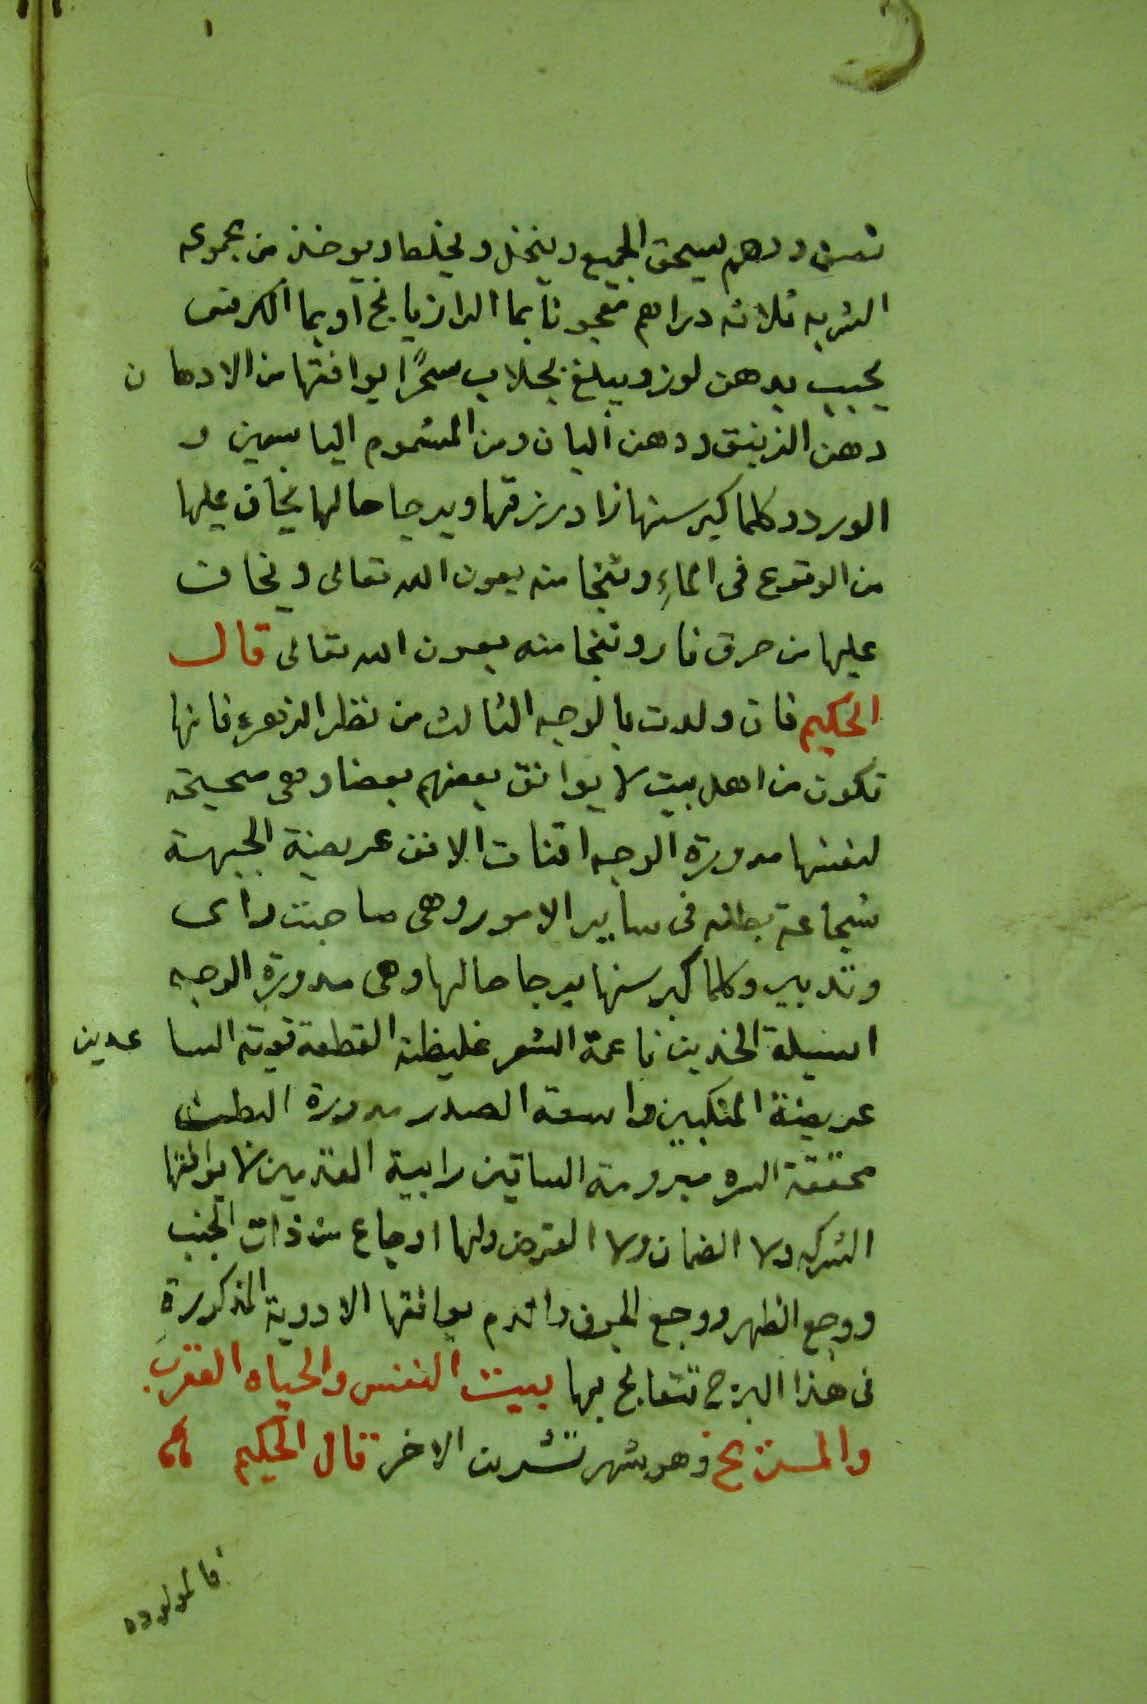 نصف درهم يسحق الجميع وينخل ويخلط ويوخذ من مجموعه
الشربه ثلاثه دراهم معجونا بما الرازيانج او بما الكرفس
يحبب بدهن لوز ويبلغ بجلاب سحرًا يوافقها من الادهان
دهن الزنبق ودهن البان ومن المشموم الياسمين و
الورد وكلما كبر سنها زاد رزقها ويرجا حالها يخاف عليها
من الوقوع فى الماءِ وتنجا منه بعون الله تعالى ويخاف
عليها من حرق نار وتنجا منه بعون الله تعالى قال
الحكيم فان ولدت بالوجه الثالث من نظر الزهره فانها
تكون من اهل بيت لا يوافق بعضهم بعضا وهى محبة
لنفسها مدورة الوجه اقنات الانف عريضة الجبهة
شجاعة بطله فى ساير الامور وهى صاحبت راى
وتدبير وكلما كبر سنها يرجا حالها وهى مدورة الوجه
اسيلة الخدين ناعمة الشعر غليظة القطعة قوية الساعدين
عريضة المنكبين واسعة الصدر مدورة البطن
محققة السره مبرومة الساقين رابية القدمين لا يوافقها
الشركه ولا الضمان ولا القرض ولها اوجاع من ذات الجنب
ووجع الظهر ووجع الجوف والدم يوافقها الادوية المذكورة
فى هذا البرج تتعالج بها بيت النفس والحياه العقرب
والمريخ وهو شهر تشرين الاخر قال الحكيم
فالمولوده